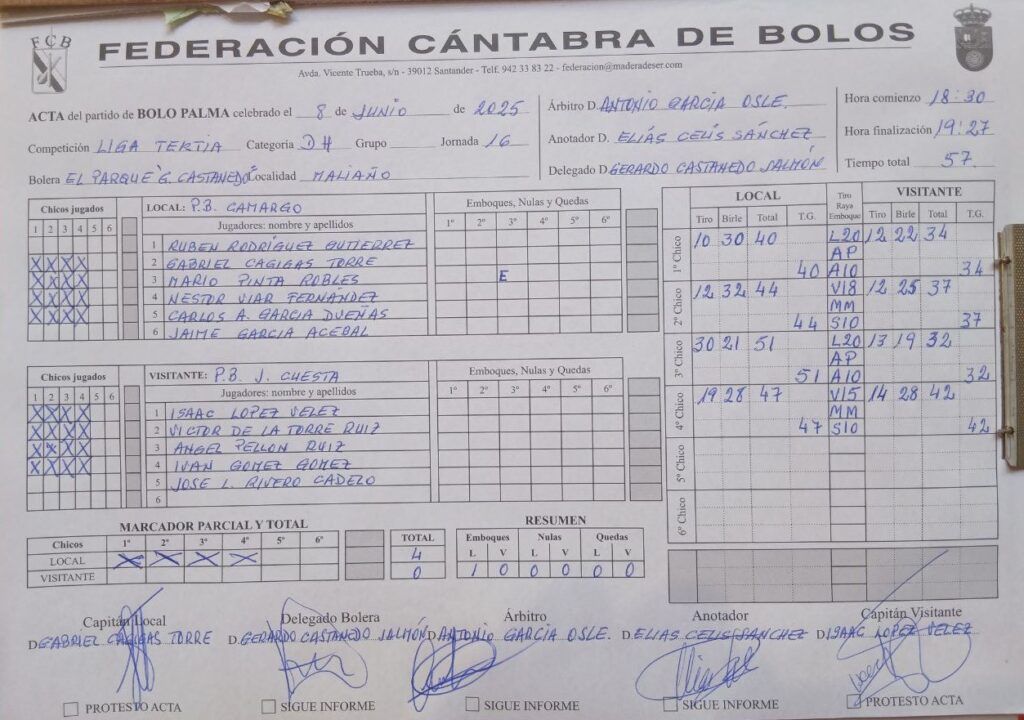 FCB
FEDERACIÓN CÁNTABRA DE BOLOS
Avda. Vicente Trueba, s/n - 39012 Santander - Telf. 942 33 83 22 - federacion@maderadeser.com
ACTA del partido de BOLO PALMA celebrado el 8 de JUNIO de 2025
Competición LIGA TERTIA Categoría DH Grupo Jornada 16
Bolera EL PARQUE G. CASTANEDO Localidad MALIAÑO
Árbitro D. ANTONIO GARCIA OSLE.
Anotador D. ELIÁS CELIS SÁNCHEZ
Delegado D. GERARDO CASTANEDO SALMÓN
Hora comienzo 18:30
Hora finalización 19:27
Tiempo total 57
Chicos jugados LOCAL: P.B. CAMARGO Emboques, Nulas y Quedas
1 2 3 4 5 6 Jugadores: nombre y apellidos 1º 2º 3º 4º 5º 6º
1 RUBEN RODRÍGUEZ GUTIERREZ
X X X X 2 GABRIEL CAGIGAS TORRE
X X X X 3 MARIO PINTA ROBLES E
X X X X 4 NESTOR VIAR FERNÁNDEZ
X X X X 5 CARLOS A. GARCIA DUEÑAS
6 JAIME GARCIA ACEBAL
Chicos jugados VISITANTE: P.B. J. CUESTA Emboques, Nulas y Quedas
1 2 3 4 5 6 Jugadores: nombre y apellidos 1º 2º 3º 4º 5º 6º
X X X X 1 ISAAC LOPEZ VELEZ
X X X X 2 VICTOR DE LA TORRE RUIZ
X X X X 3 ANGEL PELLON RUIZ
X X X X 4 IVAN GOMEZ GOMEZ
5 JOSE L. RIVERO CADELO
6
LOCAL Tiro Raya Emboque VISITANTE
Tiro Birle Total T.G. Tiro Birle Total T.G.
1º Chico 10 30 40 L20 12 22 34
AP
40 A10 34
2º Chico 12 32 44 V18 12 25 37
MM
44 S10 37
3º Chico 30 21 51 L20 13 19 32
AP
51 A10 32
4º Chico 19 28 47 V15 14 28 42
MM
47 S10 42
5º Chico
6º Chico
MARCADOR PARCIAL Y TOTAL
Chicos 1º 2º 3º 4º 5º 6º TOTAL
LOCAL X X X X 4
VISITANTE 0
RESUMEN
Emboques Nulas Quedas
L V L V L V
1 0 0 0 0 0
Capitán Local Delegado Bolera Árbitro Anotador Capitán Visitante
D. GABRIEL CAGIGAS TORRE D. GERARDO CASTANEDO SALMÓN D. ANTONIO GARCIA OSLE. D. ELIAS CELIS SANCHEZ D. ISAAC LOPEZ VELEZ
PROTESTO ACTA SIGUE INFORME SIGUE INFORME SIGUE INFORME PROTESTO ACTA